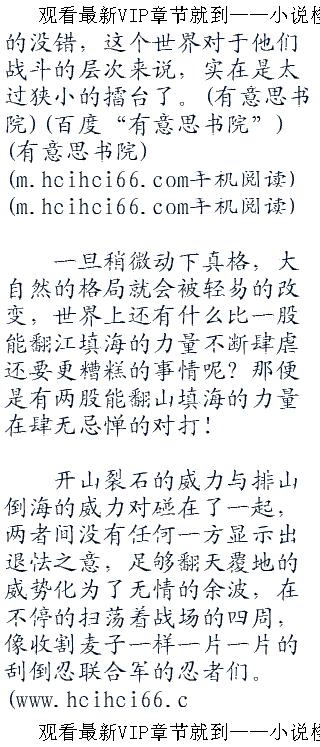 观看最新VIP章节就到——小说检
的没错，这个世界对于他们
战斗的层次来说，实在是太
过狭小的擂台了。(有意思书
院)(百度“有意思书院”)
(有意思书院)
(m.hcihci66.com手机阅读)
(m.hcihci66.com手机阅读)
一旦稍微动下真格，大
自然的格局就会被轻易的改
变，世界上还有什么比一股
能翻江填海的力量不断肆虐
还要更糟糕的事情呢？那便
是有两股能翻山填海的力量
在肆无忌惮的对打！
开山裂石的威力与排山
倒海的威力对碰在了一起，
两者间没有任何一方显示出
退怯之意，足够翻天覆地的
威势化为了无情的余波，在
不停的扫荡着战场的四周，
像收割麦子一样一片一片的
刮倒忍联合军的忍者们。
(www.hcihci66.c
观看最新VIP章节就到——小说检